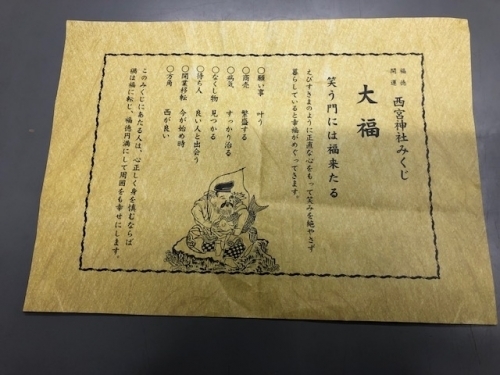 福徳
開運
西宮神社みくじ
大福
笑う門には福来たる
えびすさまのように正直な心をもって笑みを絶やさず
暮らしていると幸福がめぐってきます。
〇願い事 叶う
〇商売 繁盛する
〇病気 すっかり治る
〇なくし物 見つかる
〇待ち人 良い人と出会う
〇開業移転 今が始め時
〇方角 西が良い
このみくじにあたる人は、心正しく身を慎むならば
禍は福に転じ、福徳円満にして周囲をも幸せにします。